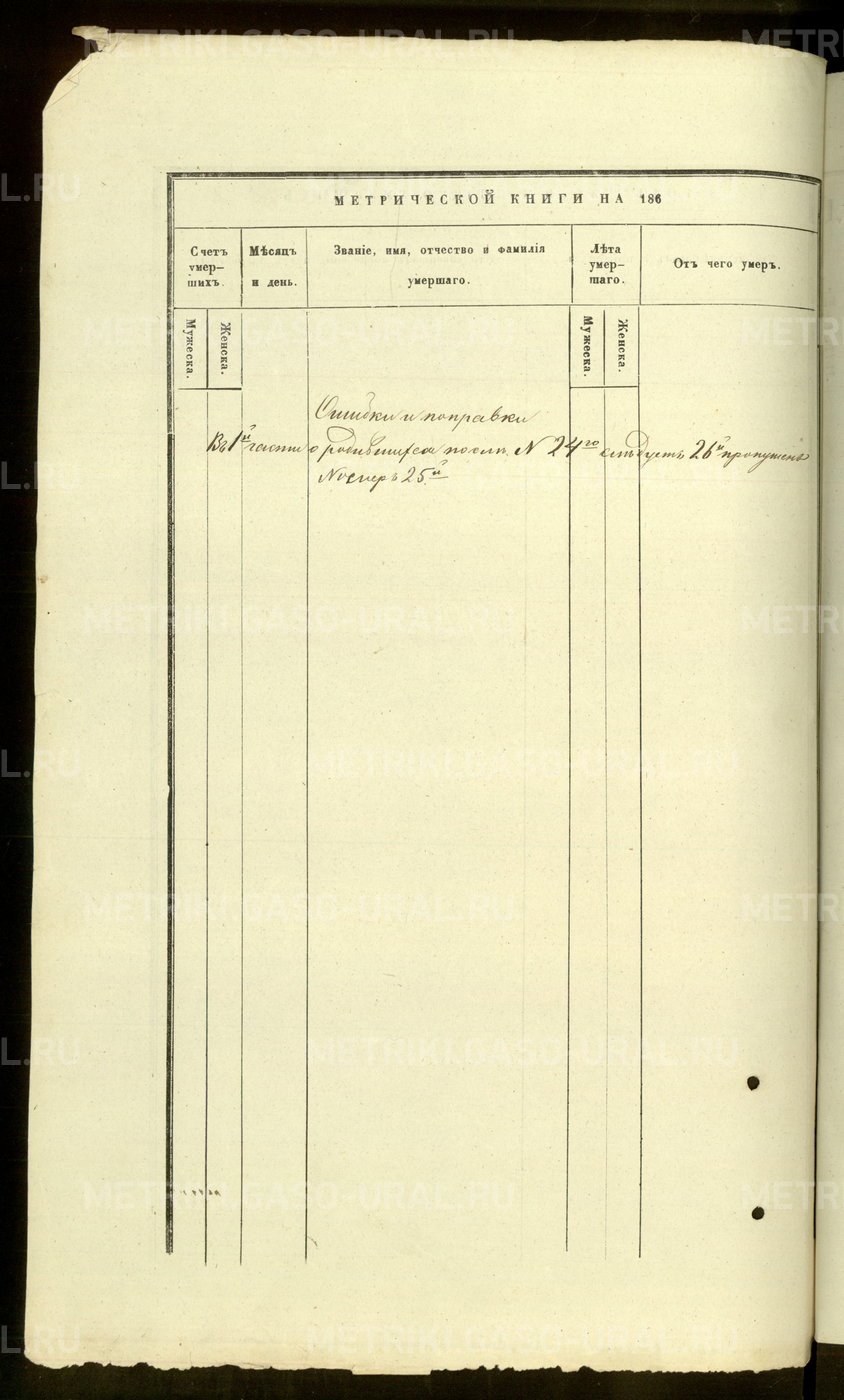 МЕТРИЧЕСКОЙ КНИГИ НА 186
Счетъ умер-шихъ.
Мѣсяцъ и день.
Званіе, имя, отчество и фамилія умершаго.
Лѣта умер-шаго.
Отъ чего умеръ.
Мужеска.
Женска.
Мужеска.
Женска.
Ошибки и поправки
Въ 1й части о родившихся послѣ N 24го слѣдуетъ 26й пропущенъ
Номеръ 25й
METRIKI.GASO-URAL.RU